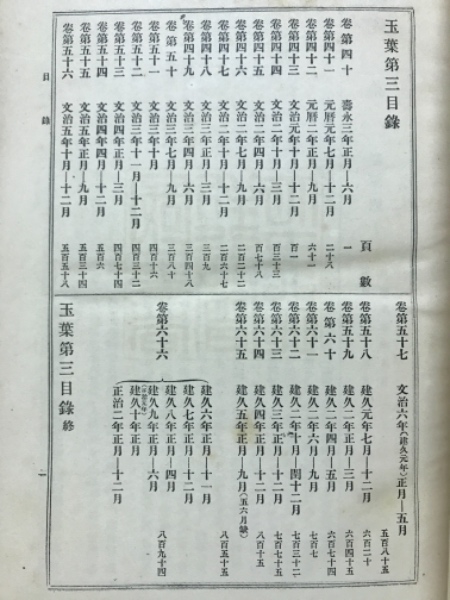 玉葉第三目録
頁數
卷第四十 壽永三年正月—六月 一
卷第四十一 元曆元年七月—十二月 二十八
卷第四十二 元曆二年正月—九月 六十一
卷第四十三 文治元年十月—十二月 百一
卷第四十四 文治二年正月—三月 百三十三
卷第四十五 文治二年四月—六月 百七十八
卷第四十六 文治二年七月—九月 二百二十二
卷第四十七 文治二年十月—十二月 二百六十七
卷第四十八 文治三年正月—三月 三百九
卷第四十九 文治三年四月—六月 三百四十八
卷第五十 文治三年七月—九月 三百八十
卷第五十一 文治三年十月 四百十六
卷第五十二 文治三年十一月—十二月 四百三十二
卷第五十三 文治四年正月—三月 四百七十四
卷第五十四 文治四年四月—十二月 五百六
卷第五十五 文治五年正月—九月 五百三十四
卷第五十六 文治五年十月—十二月 五百五十八
目錄
卷第五十七 文治六年(建久元年)正月—五月 五百八十五
卷第五十八 建久元年七月—十二月 六百二十
卷第五十九 建久二年正月—三月 六百四十五
卷第六十 建久二年四月—五月 六百七十四
卷第六十一 建久二年六月—九月 七百七
卷第六十二 建久二年十月—閏十二月 七百三十二
卷第六十三 建久三年正月—十二月 七百七十五
卷第六十四 建久四年正月—十二月 八百十五
卷第六十五 建久五年正月—九月(五六月缺) 八百五十五
卷第六十六 八百九十四
建久六年正月—十一月
建久七年正月—十二月
建久八年正月—四月
建久九年正月—六月
建久十年正月
正治二年正月—十二月
玉葉第三目錄終